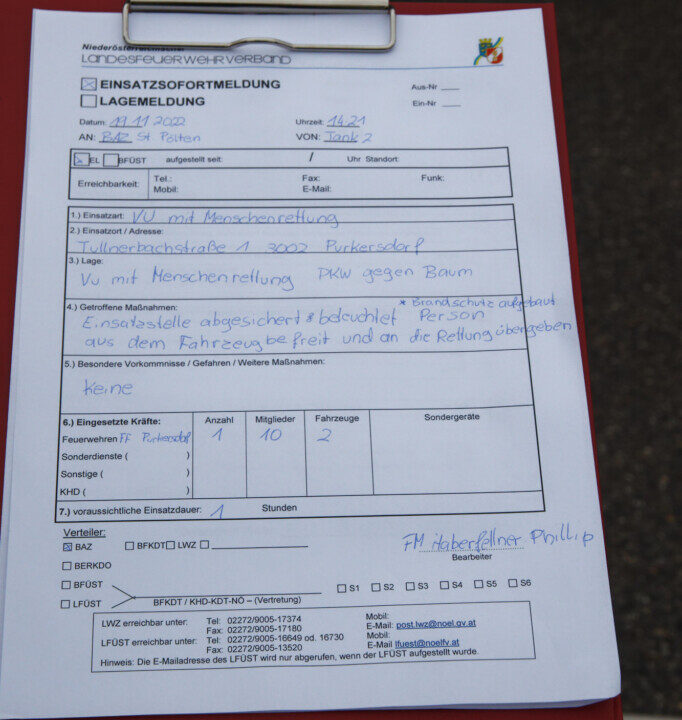 Niederösterreichischer
LANDESFEUERWEHRVERBAND
☒ EINSATZSOFORTMELDUNG
Aus-Nr ____
☐ LAGEMELDUNG
Ein-Nr ____
Datum: 19 11 2022 Uhrzeit: 14:21
AN: BAZ St Pölten VON: Tank 2
☒ EL ☐ BFÜST aufgestellt seit: / Uhr Standort:
Erreichbarkeit: Tel.: Fax: Funk:
Mobil: E-Mail:
1.) Einsatzart: VU mit Menschenrettung
2.) Einsatzort / Adresse:
Tullnerbachstraße 1 3002 Purkersdorf
3.) Lage:
VU mit Menschenrettung PKW gegen Baum
4.) Getroffene Maßnahmen: * Brandschutz aufgebaut
Einsatzstelle abgesichert & beleuchtet Person
aus dem Fahrzeug befreit und an die Rettung übergeben
5.) Besondere Vorkommnisse / Gefahren / Weitere Maßnahmen:
Keine
6.) Eingesetzte Kräfte: Anzahl Mitglieder Fahrzeuge Sondergeräte
Feuerwehren FF Purkersdorf 1 10 2
Sonderdienste ( )
Sonstige ( )
KHD ( )
7.) voraussichtliche Einsatzdauer: 1 Stunden
Verteiler:
☒ BAZ ☐ BFKDT ☐ LWZ ☐
FM Haberfellner Phillip
Bearbeiter
☐ BERKDO
☐ BFÜST
☐ S1 ☐ S2 ☐ S3 ☐ S4 ☐ S5 ☐ S6
☐ LFÜST
BFKDT / KHD-KDT-NÖ – (Vertretung)
LWZ erreichbar unter: Tel: 02272/9005-17374 Mobil:
Fax: 02272/9005-17180 E-Mail: post.lwz@noel.gv.at
LFÜST erreichbar unter: Tel: 02272/9005-16649 od. 16730 Mobil:
Fax: 02272/9005-13520 E-Mail lfuest@noelfv.at
Hinweis: Die E-Mailadresse des LFÜST wird nur abgerufen, wenn der LFÜST aufgestellt wurde.